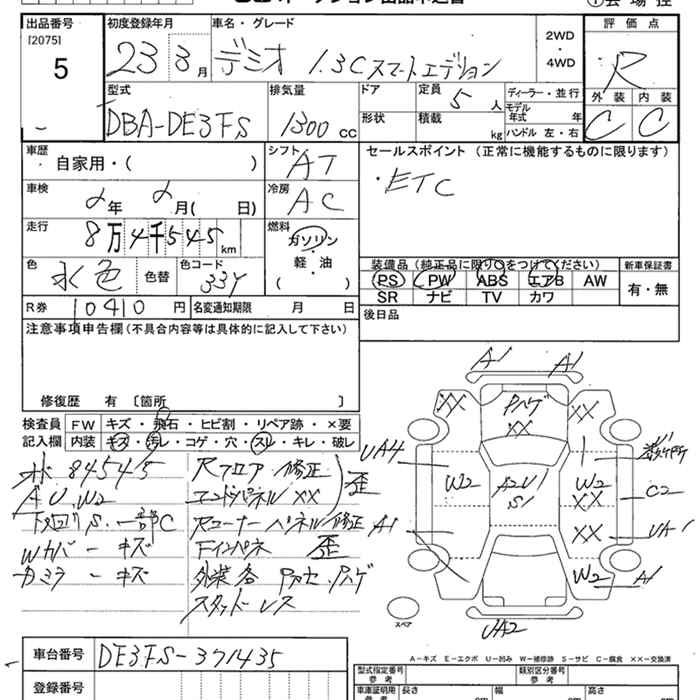 出品番号
[2075]
5
初度登録年月
23 3 月
車名・グレード
デミオ 1.3Cスマートエディション
2WD
・
4WD
評価点
R
外装 内装
C C
型式
DBA-DE3FS
排気量
1300 cc
ドア
形状
定員
5 人
積載
kg
ディーラー・並行
モデル
年式 年
ハンドル 左・右
車歴
自家用・( )
シフト
AT
セールスポイント (正常に機能するものに限ります)
・ETC
車検
2年 2月( 日)
冷房
AC
走行
8万4千545 km
燃料
ガソリン
・
軽・油
( )
色
水色
色替
色コード
33Y
装備品 (純正品に限り○をつけてください)
PS PW ABS エアB AW
SR ナビ TV カワ
新車保証書
有・無
R券 10410 円
名変通知期限 月 日
後日品
注意事項申告欄 (不具合内容等は具体的に記入して下さい)
修復歴 有 〔箇所 〕
検査員
記入欄
FW キズ・飛石・ヒビ割・リペア跡・×要
内装 キズ・汚レ・コゲ・穴・スレ・キレ・破レ
84545
A U.W2
下回りS.一部C
Wカバーキズ
カミラーキズ
Rフロア 修正
エンドパネル XX
Rコーナーパネル修正
Fインパネ 歪
外装各 Pカセ.Pハゲ
スタッドレス
歪
A1 A1
XX Pハゲ XX
XX
UA4 1
W2 A2U1 W2 C2
S1 XX
A1 XX UA1
W2 A1
スペア
UA2
A-キズ E-エクボ U-凹み W-補修跡 S-サビ C-腐食 XX-交換済
車台番号 DE3FS-371435
登録番号
型式指定番号
参考
類別区分番号
参考
車庫証明用
参考
長さ cm 幅 cm 高さ cm